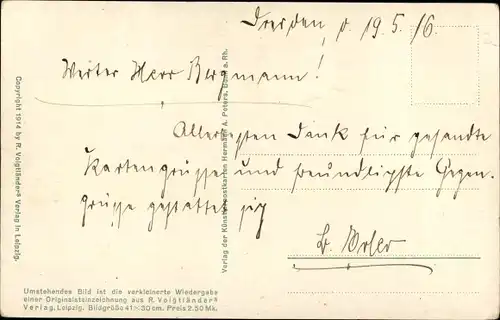 Dresden, d. 19.5.16.
Werter Herr Bergmann!
Allerbesten Dank für gesandte
Kartengrüsse und freundlichste Gegen-
grüsse gestattet sich
Copyright 1914 by R. Voigtländers Verlag in Leipzig.
Verlag der Künstlerpostkarten Hermann A. Peters, Bonn a. Rh.
Umstehendes Bild ist die verkleinerte Wiedergabe
einer Originalsteinzeichnung aus R. Voigtländers
Verlag, Leipzig. Bildgröße 41×30 cm. Preis 2.50 Mk.